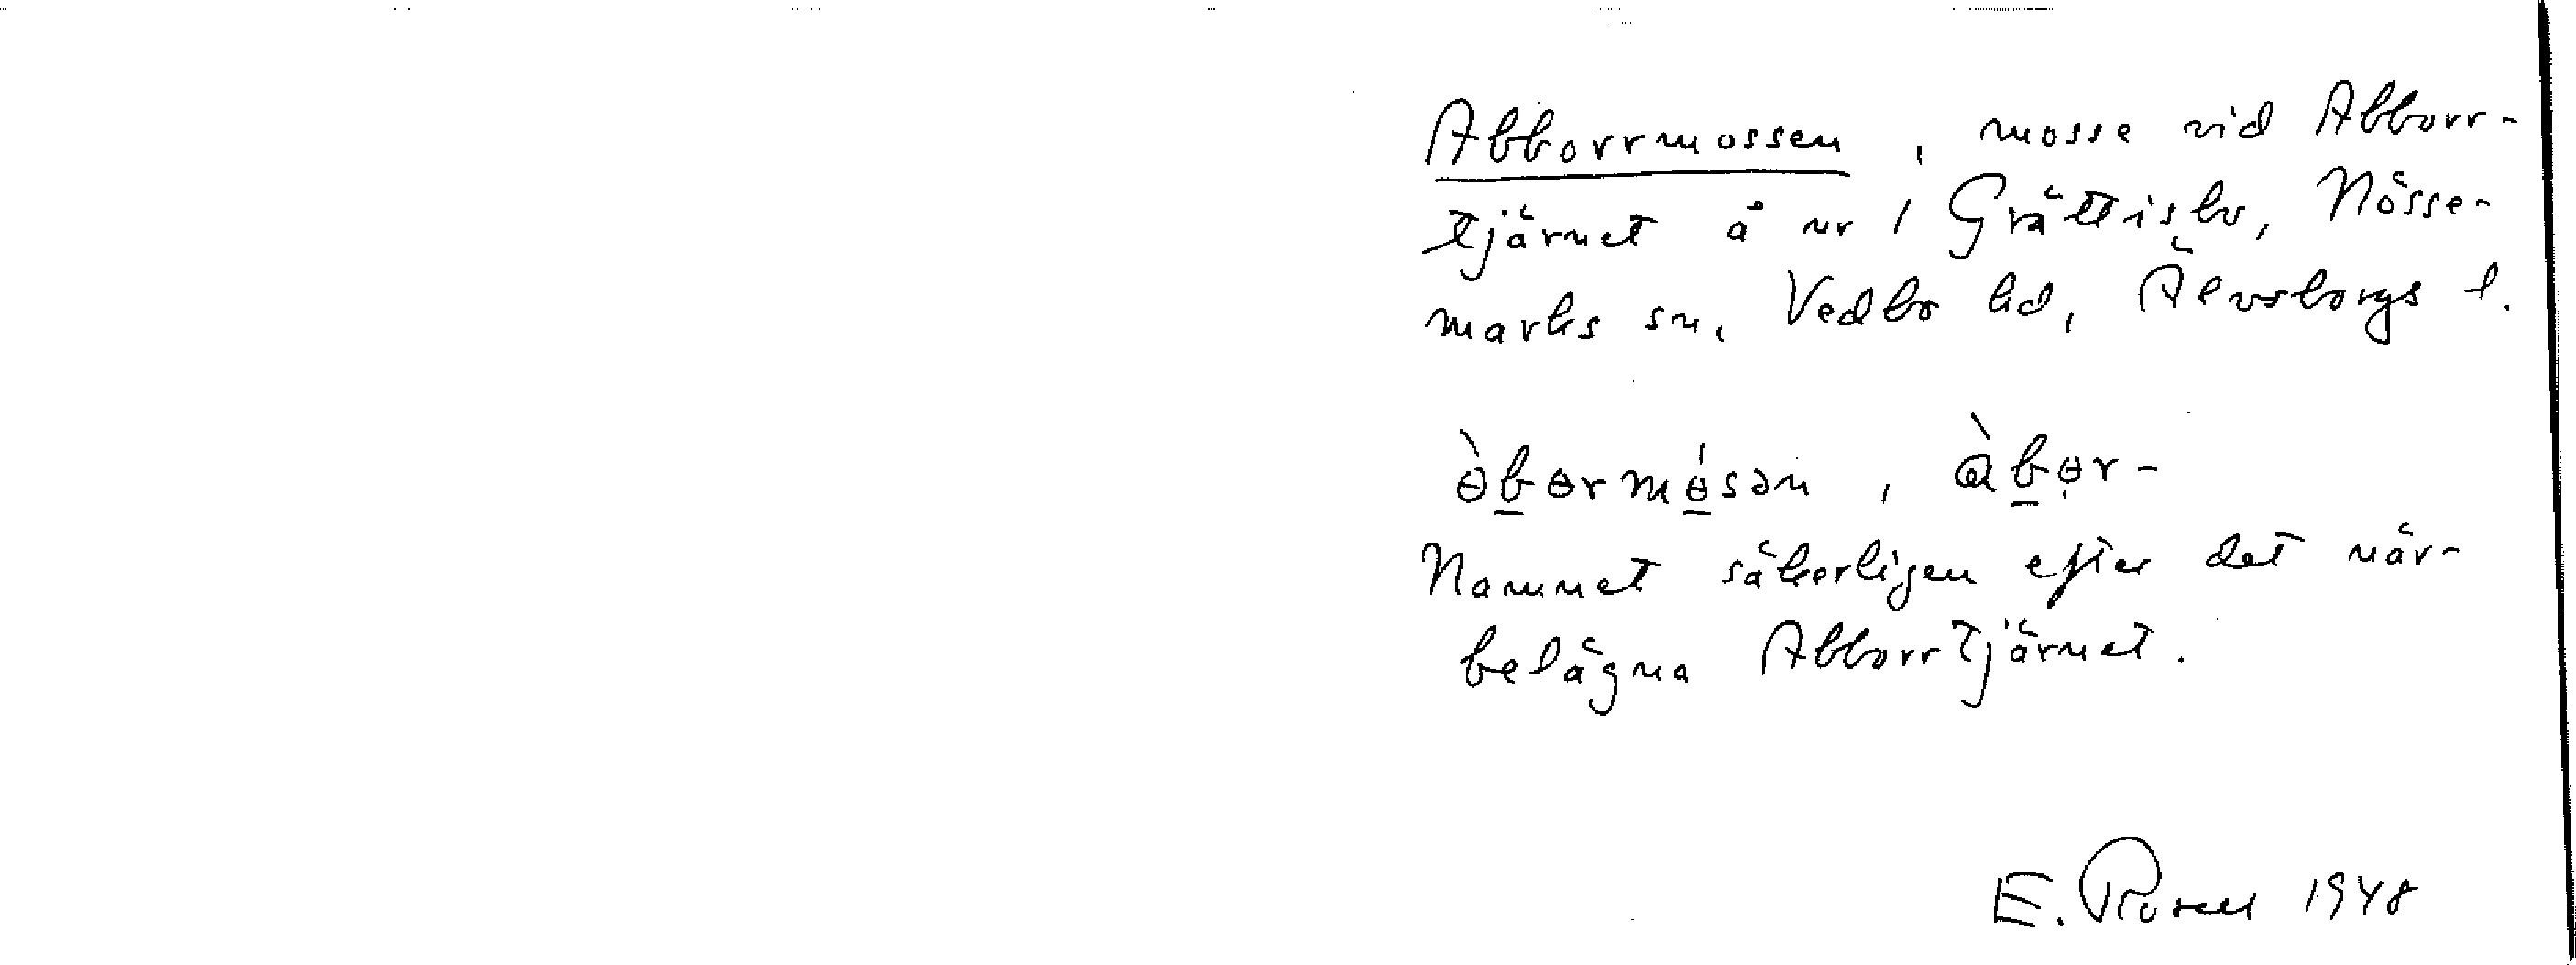 Abborrmossen, mosse vid Abborr-
tjärnet å nr 1 Grättisbo, Nösse-
marks sn, Vedbo hd, Älvsborgs l.
ɵ̀bɵrmɵ́sən, àbɵr-
Namnet säkerligen efter det när-
belägna Abborrtjärnet.
E. Rosell 1948